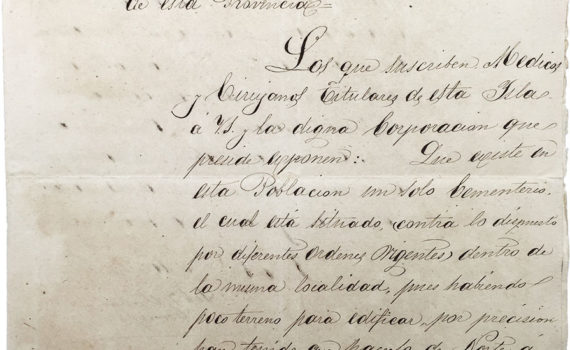 de esta Provincia=
Los que suscriben Medicos
y Cirujanos Titulares de esta Isla
á VS. y la digna Corporacion que
preside esponen: Que existe en
esta Poblacion un solo Cementerio,
el cual está situado, contra lo dispuesto
por diferentes Ordenes vigentes, dentro de
la misma localidad, pues habiendo
poco terreno para edificar, por precision
han tenido que hacerlo de Norte a